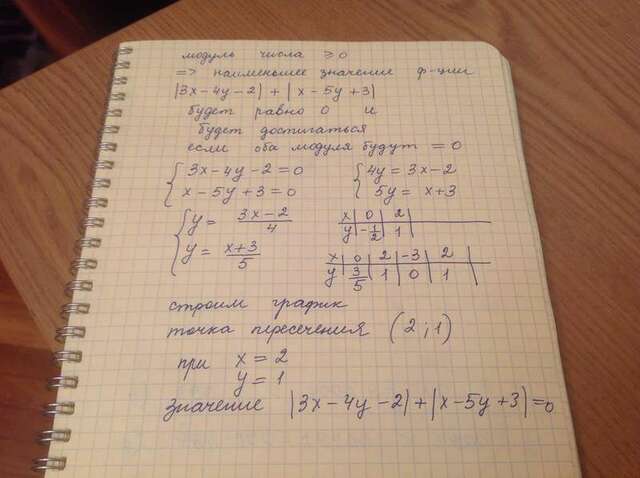 модуль числа ≥ 0
=> наименьшее значение ф-ции
|3x-4y-2| + |x-5y+3|
будет равно 0 и
будет достигаться
если оба модуля будут = 0
{ 3x-4y-2=0 { 4y = 3x-2
x-5y+3=0 5y = x+3
{ y = (3x-2)/4 x | 0 | 2 |
y | -1/2 | 1 |
y = (x+3)/5 x | 0 | 2 | -3 | 2 |
y | 3/5 | 1 | 0 | 1 |
строим график
точка пересечения (2;1)
при x = 2
y = 1
значение |3x-4y-2|+|x-5y+3|=0